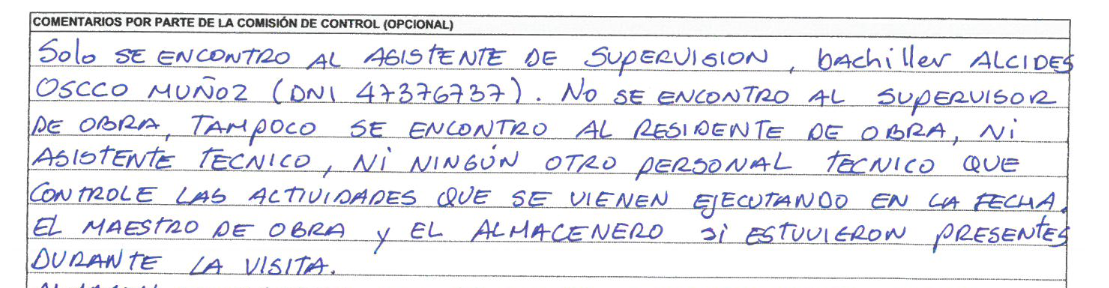 COMENTARIOS POR PARTE DE LA COMISIÓN DE CONTROL (OPCIONAL)
Solo SE ENCONTRO AL ASISTENTE DE SUPERVISION, bachiller ALCIDES
OSCCO MUÑOZ (DNI 47376737). No SE ENCONTRO AL SUPERVISOR
DE OBRA, TAMPOCO SE ENCONTRO AL RESIDENTE DE OBRA, Ni
ASISTENTE TECNICO, Ni NINGÚN OTRO PERSONAL TECNICO QUE
CONTROLE LAS ACTIVIDADES QUE SE VIENEN EJECUTANDO EN LA FECHA.
EL MAESTRO DE OBRA y EL ALMACENERO si ESTUVIERON PRESENTES
DURANTE LA VISITA.